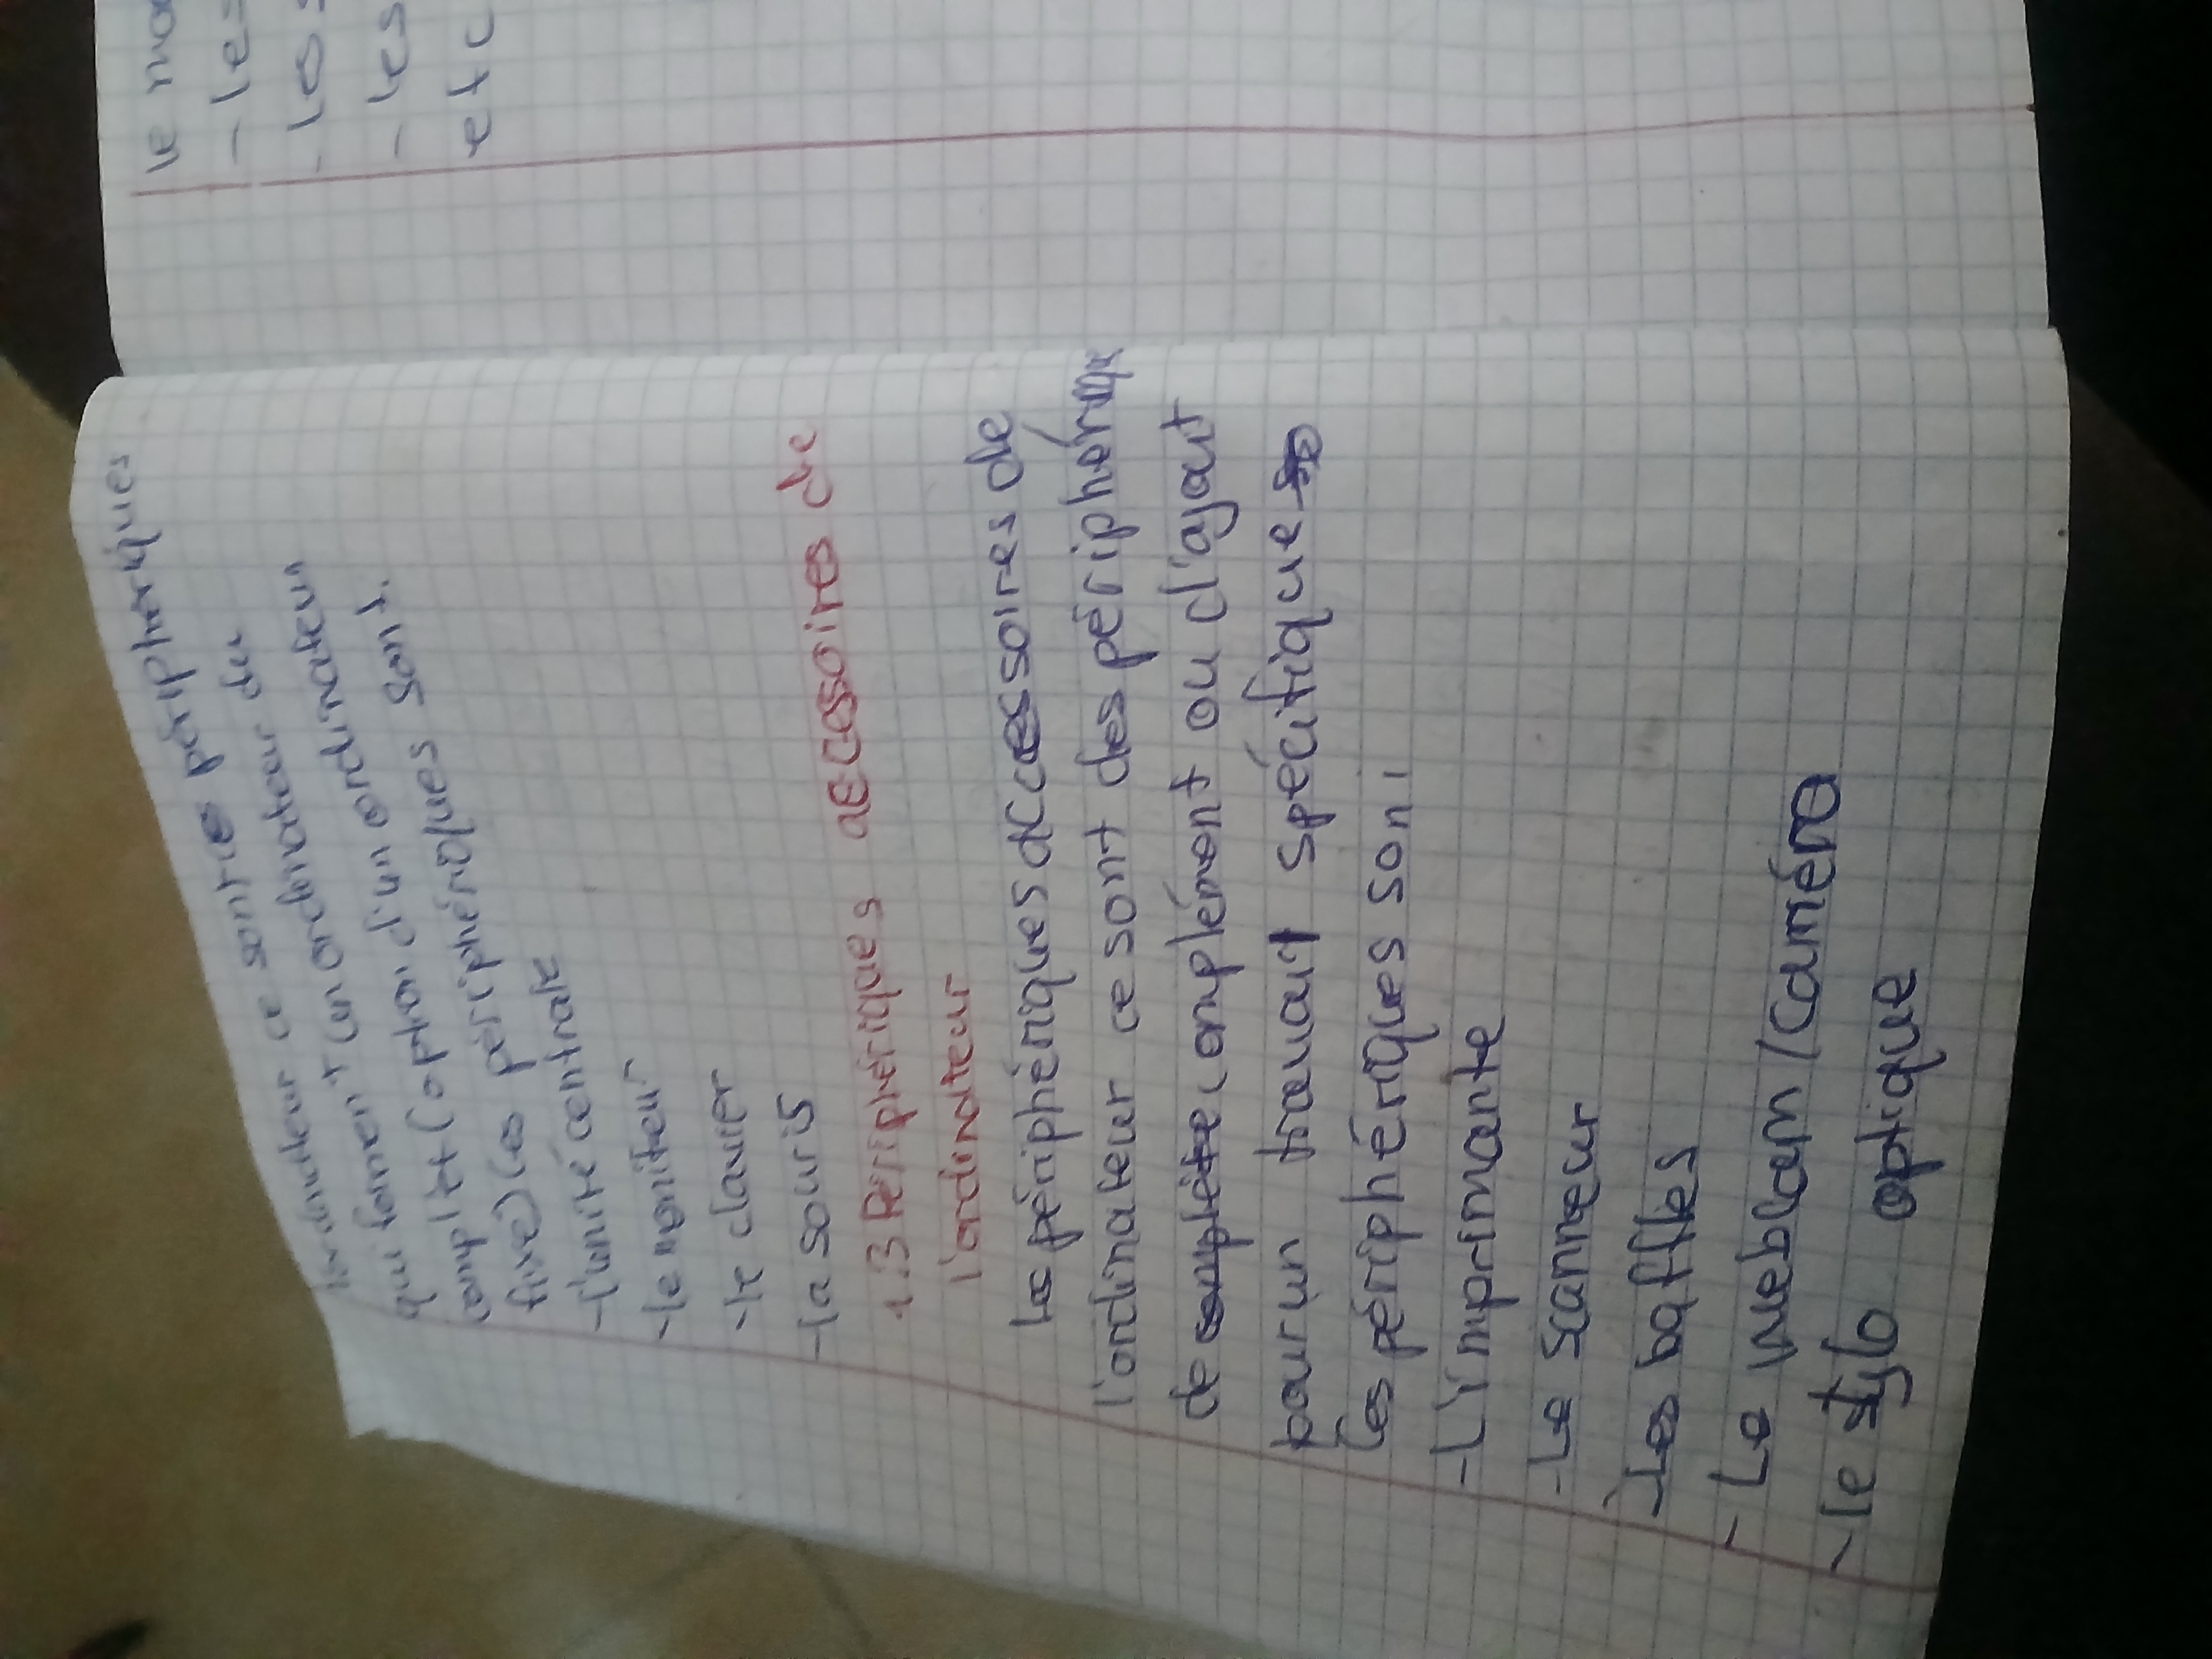 l'ordinateur ce sont les périphériques
qui forment (un ordinateur du
complet (option d'un ordinateur
fixe) ces périphériques sont.
-l'unité centrale
-le moniteur
-le clavier
-la souris
1.3 Peripheriques accessoires de
l'ordinateur
Les périphériques accessoires de
l'ordinateur ce sont des périphérique
de complément ou d'ajout
pour un travail spécifique
Les périphériques son:
-L'imprimante
-Le scanneur
-Les baffles
-Le webcam / Caméra
-le stylo optique
le mo
- les
- les
- les
etc